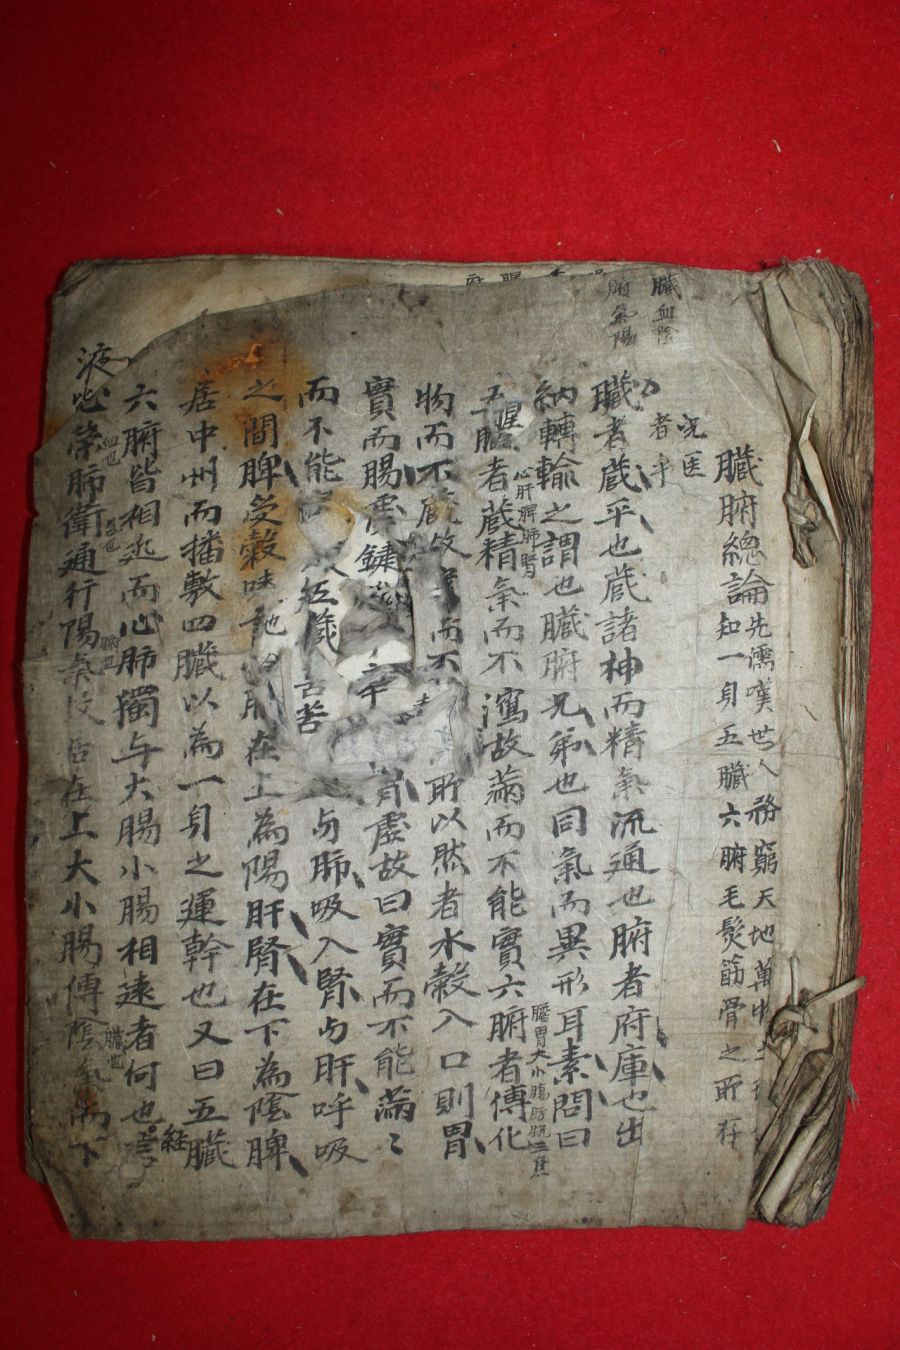 臟腑總論
先濡嘆世人務窮天地萬
知一身五臟六腑毛髮筋骨之所存
況医
者乎
臟血陰
腑氣陽
臟者蔵乎也蔵諸神而精氣流通也腑者府庫也出
納轉輸之謂也臟腑兄弟也同氣而異形耳素問曰
五臟者蔵精氣而不瀉故滿而不能實六腑者傳化
心肝脾肺腎
膽胃大小腸膀胱三焦
物而不蔵故實而不 所以然者水穀入口則胃
實而腸虛 胃虛故曰實而不能滿〻
而不能 与肺吸入腎与肝呼吸
之間脾受穀味 在上為陽肝腎在下為陰脾
居中州而播敷四臟以為一身之運幹也又曰五臟
六腑皆相近而心肺獨与大腸小腸相遠者何也
経
液 心榮肺衛通行陽氣故居在上大小腸傳陰氣而下
血也
氣也
腑也
臟也